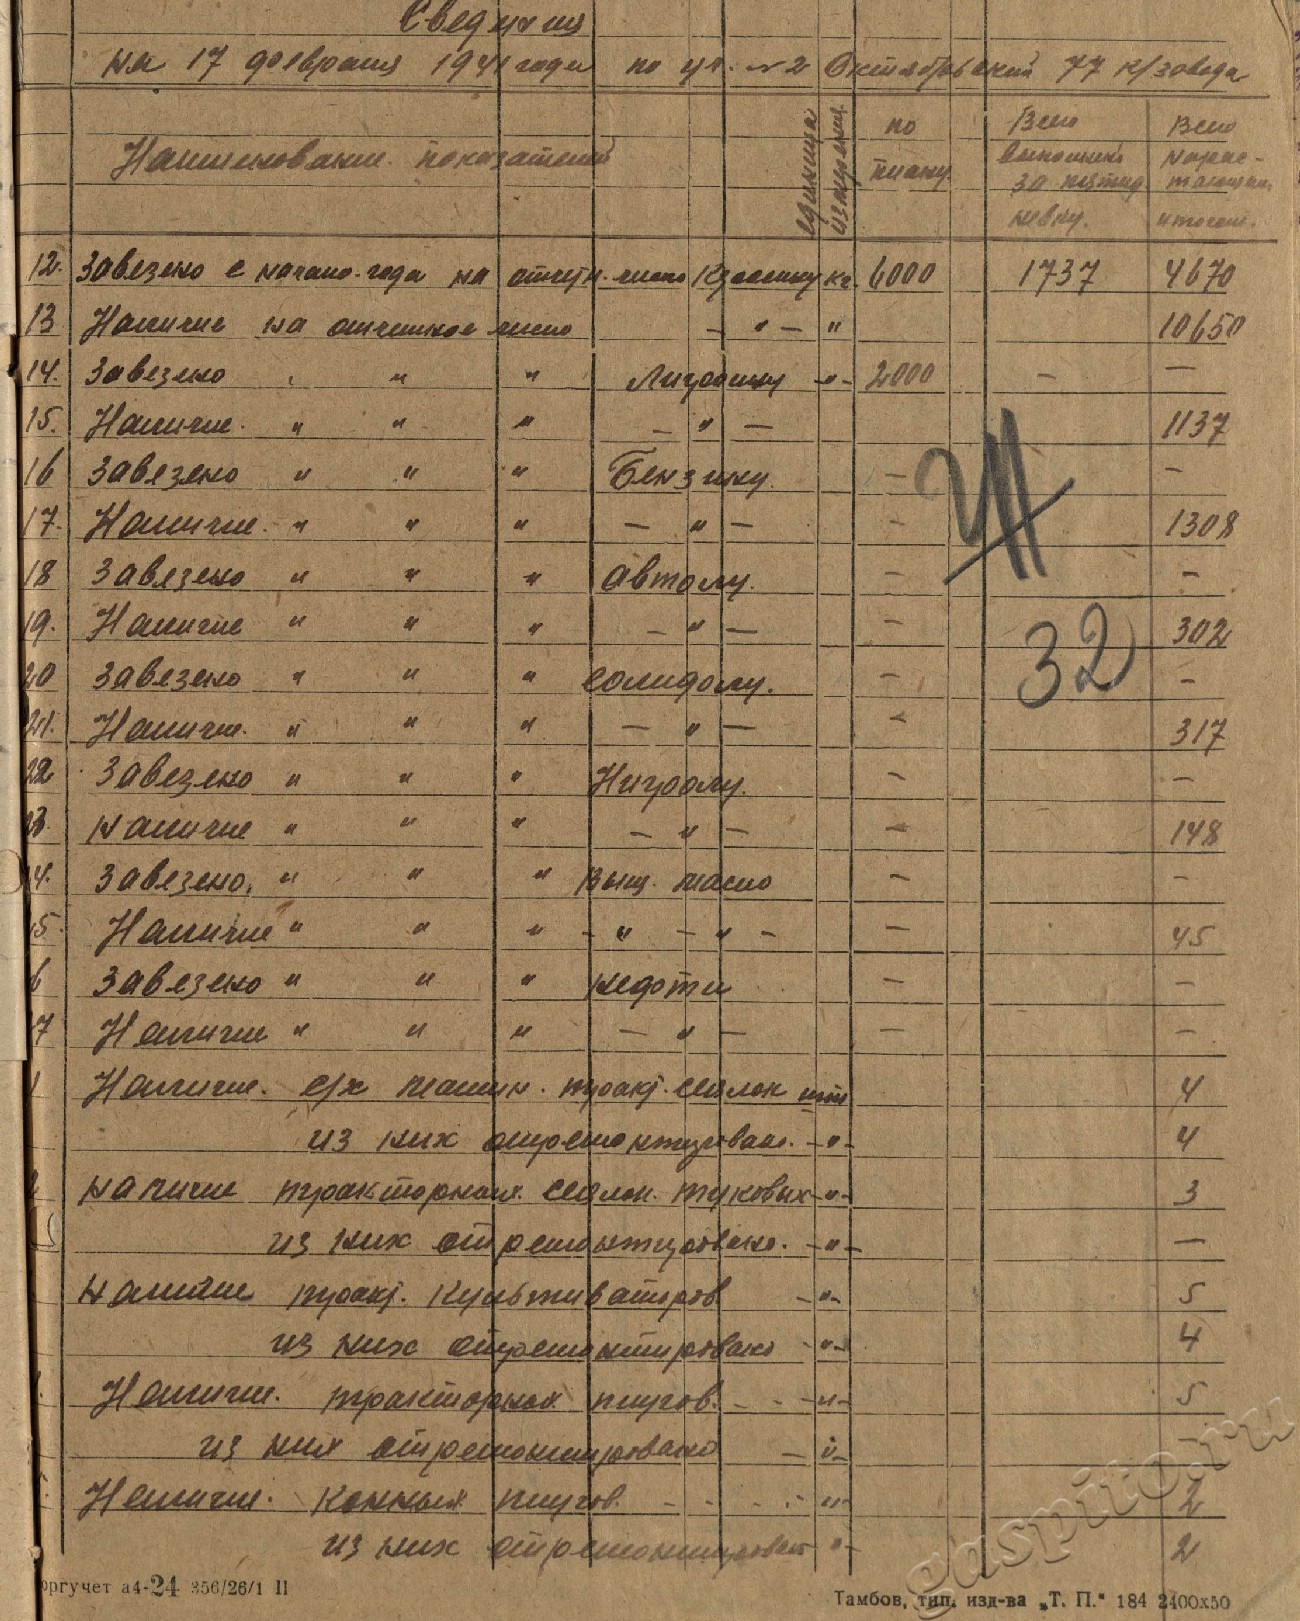 Сведения
на 17 февраля 1941 года по уч. №2 Октябрьский 77 к/завода
Наименование показателей
единица измерения
по плану
Всего выполнено за пятидневку.
Всего нарастающим итогом.
12. Завезено с начало года на отчетн. число Керосину кг. 6000 1737 4670
13 Наличие на отчетное число — " — " 10650
14. Завезено " " Лигроину -"- 2000 — —
15. Наличие. " " " — " — 1137
16 Завезено " " " Бензину. — —
17. Наличие. " " " — " — - 1308
18 Завезено " " " автолу. — —
19. Наличие " " " — " — - 302
20 Завезено " " " солидолу. — —
21. Наличие. " " " — " — - 317
22 Завезено " " " Нигролу. — —
23. Наличие " " " — " — - 148
4. Завезено. " " " Выщ. масло — —
5. Наличие " " " - " - " - — 45
6 Завезено " " " нефти — —
7 Наличие " " " — " — — —
1 Наличие. с/х машин. тракт. сеялок шт 4
из них отремонтирован. -"- 4
2 наличие тракторных сеялок туковых -"- 3
из них отремонтировано. -"- —
наличие тракт. культиваторов -"- 5
из них отремонтировано -"- 4
Наличие. тракторных плугов. - - -"- 5
из них отремонтировано — "- -
Наличие. конных плугов. - - - - -"- 2
из них отремонтировано -"- 2
41
32
оргучет а4-24 356/26/1 II
Тамбов, тип. изд-ва „Т. П.“ 184 2400х50
gaspito.ru